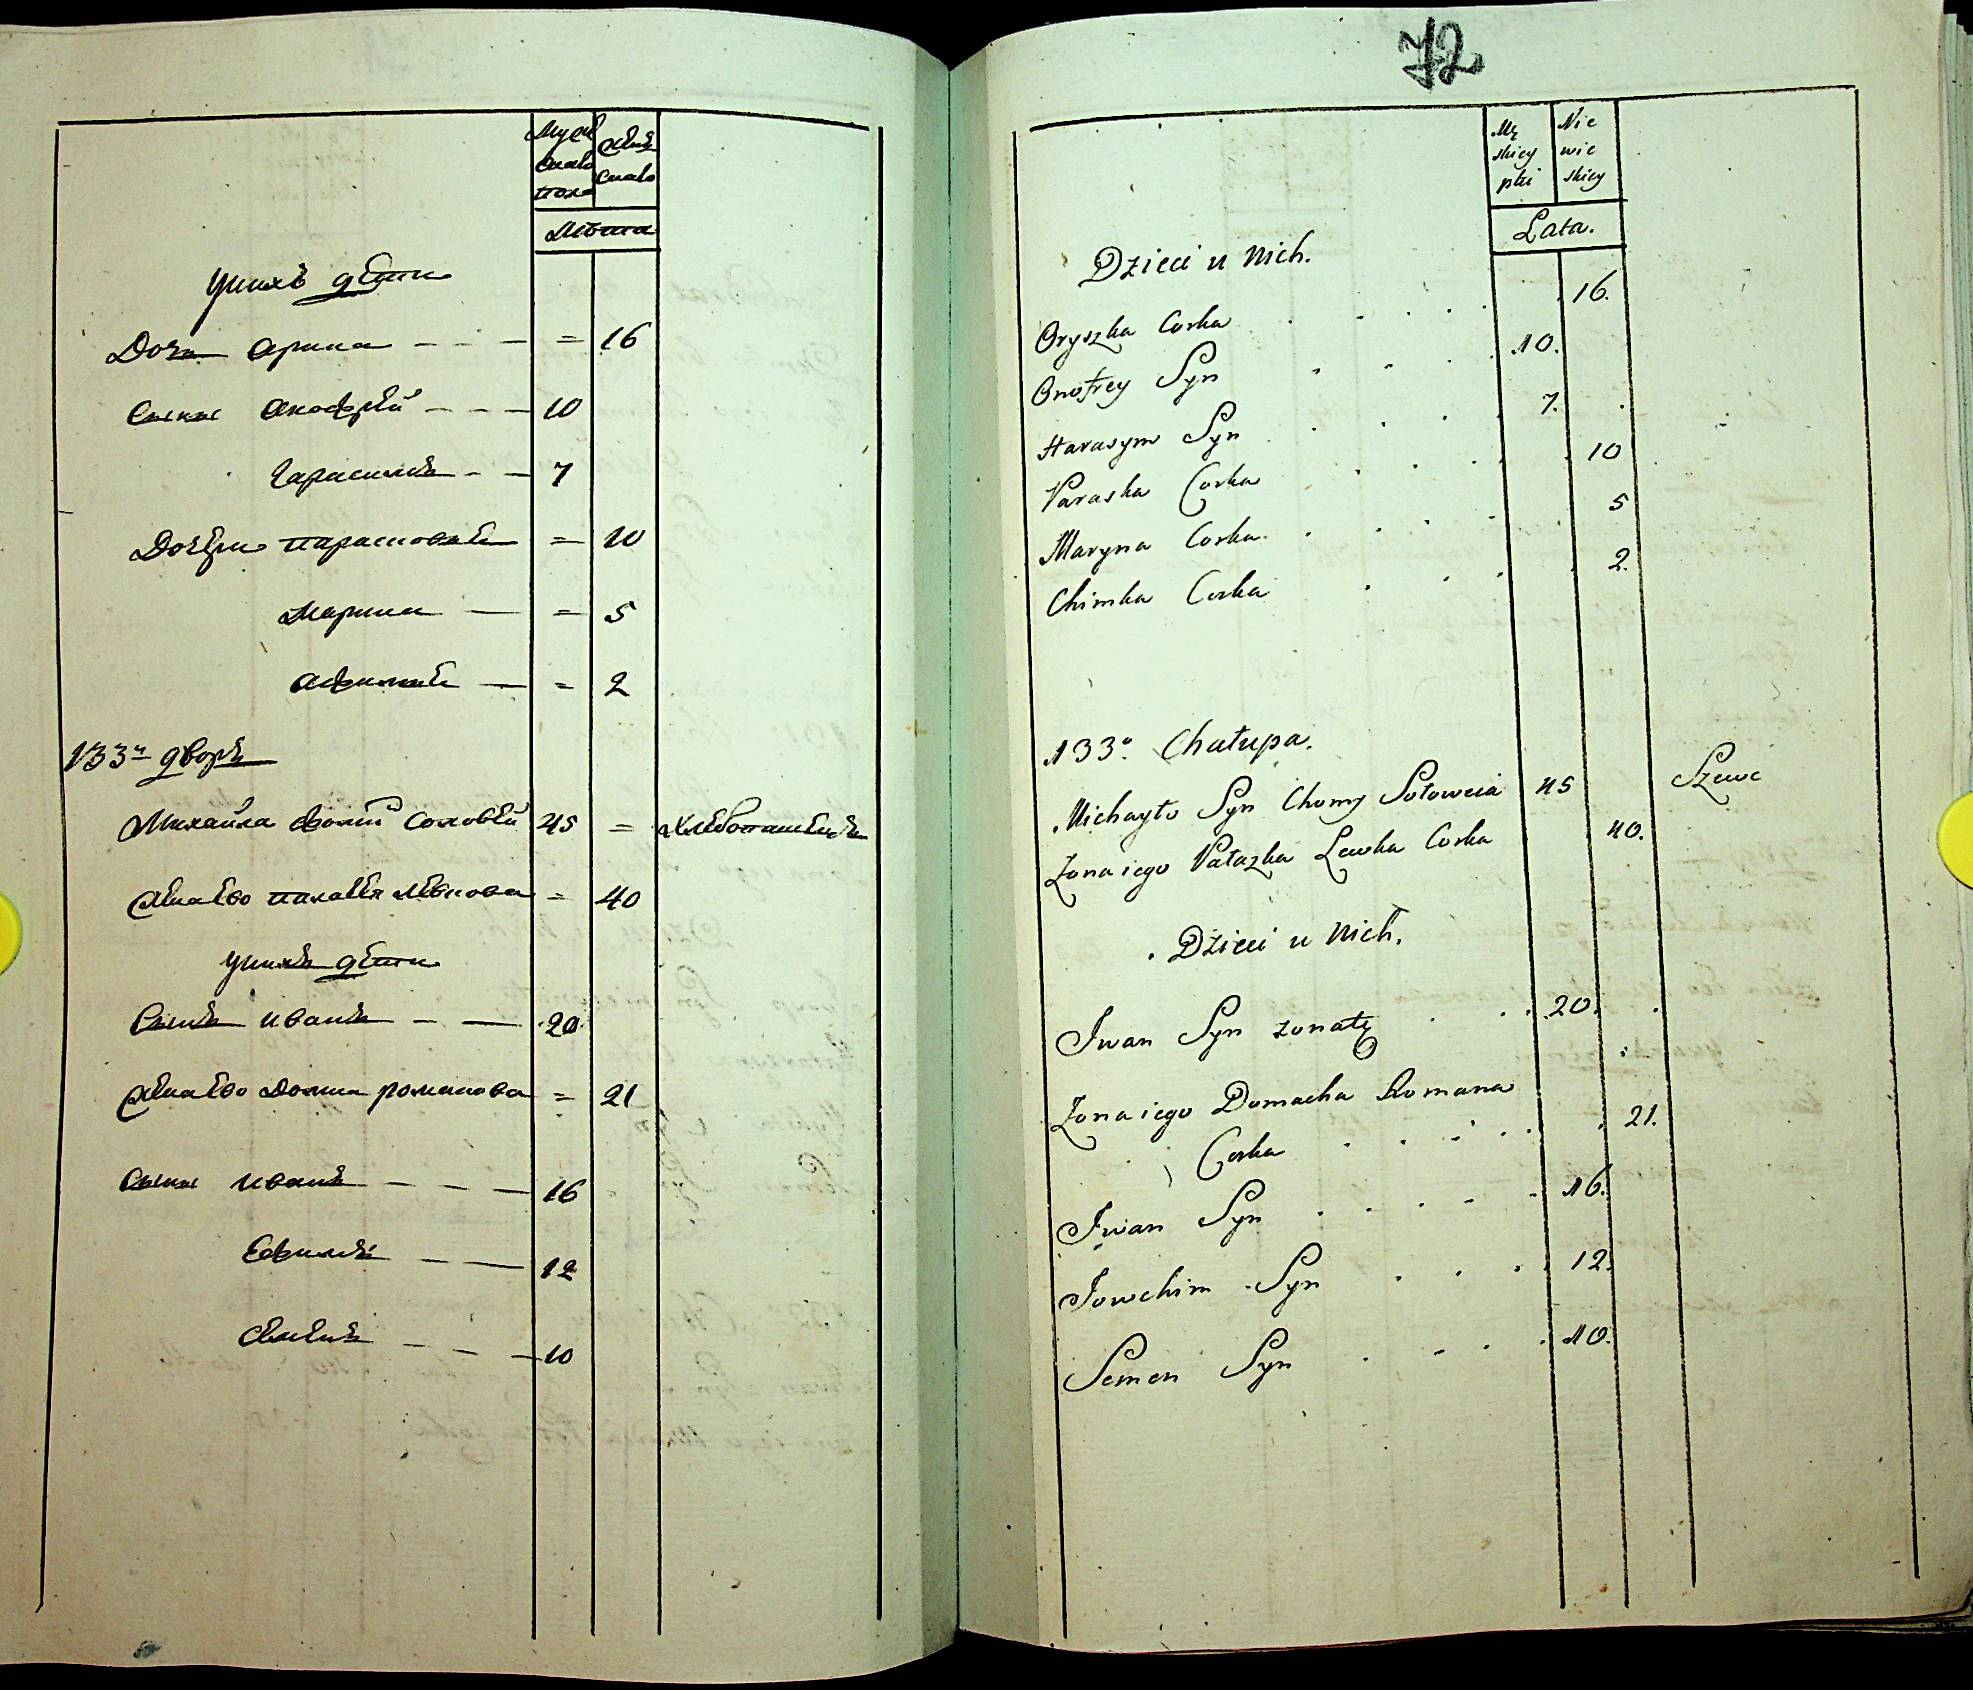 Мужеска пола
Женска
Лѣта
У нихъ дѣти
Дочь Арина — — — = 16
Сыны Анофрѣй — — — 10
Гарасимъ — — 7
Дочери Парасковѣя = 10
Марина — = 5
Афимiя — = 2
133й дворъ
Михайла Фомин Соловѣй 45 = Хлебопашецъ
Жена Ево Палагѣя Левкова = 40
У нихъ дѣти
Сынъ Иванъ — — 20
Жена Ево Домна Романова = 21
Сыны Иванъ — — — 16
Ефимъ — — 12
Семенъ — — — 10
72
Mę skiey płci
Nie wie skiey
Lata.
Dzieci u Nich.
Oryszka Corka 16.
Onofrey Syn 10.
Harasym Syn 7.
Paraska Corka 10
Maryna Corka 5
Chimka Corka 2.
133. Chałupa.
Michayło Syn Chomy Sołoweia 45 Szewc
Zona iego Pałazka Lewka Corka 40.
Dzieci u Nich.
Iwan Syn zonaty 20.
Zona iego Domacha Romana
Corka 21.
Iwan Syn 16.
Iowchim Syn 12.
Semen Syn 10.